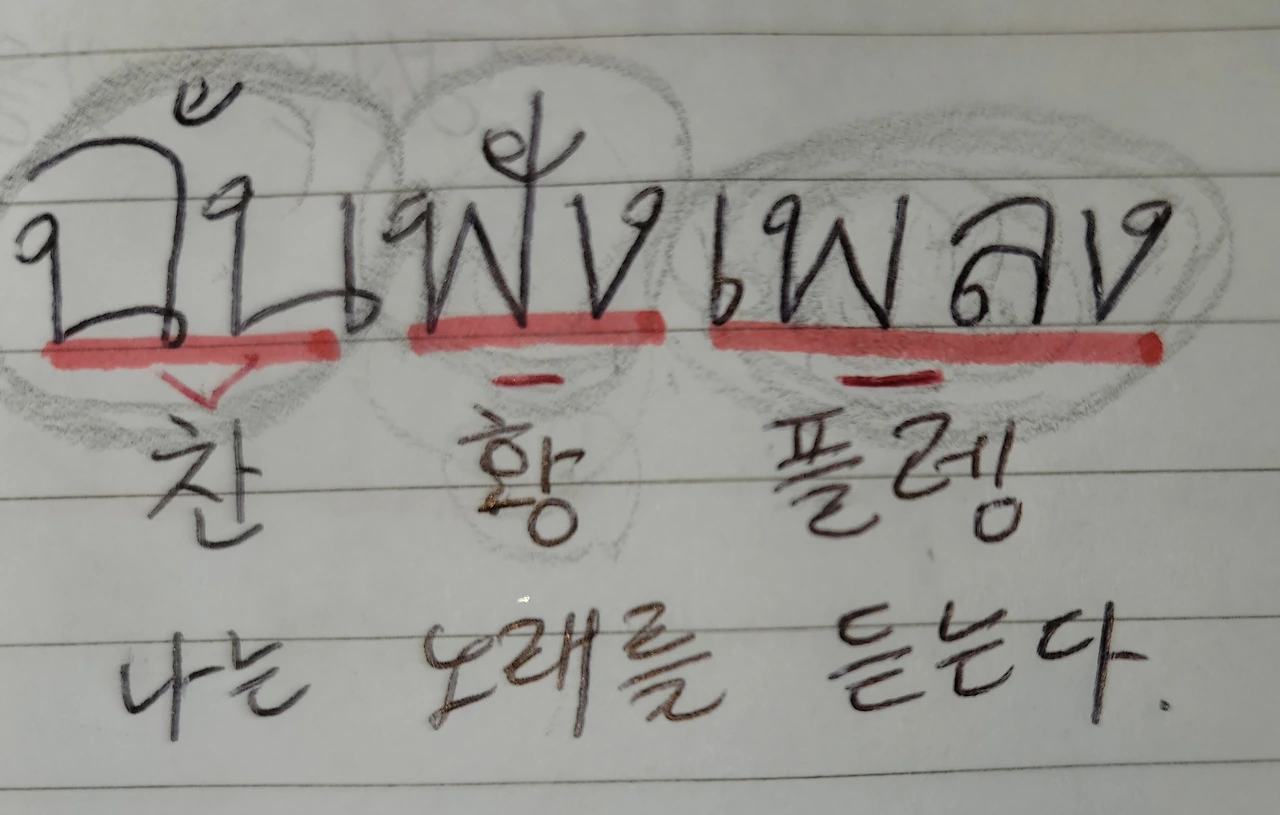 ฉัน ฟัง เพลง
찬 황 플렝
나는 노래를 듣는다.